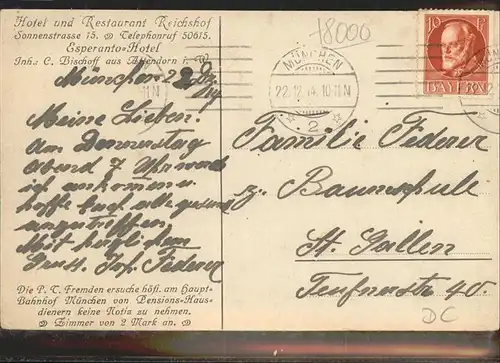 Hotel und Restaurant Reichshof
Sonnenstrasse 15. Telephonruf 50615.
Esperanto-Hotel
Inh: C. Bischoff aus Attendorn i. W.
München 22. Dez.
Meine Lieben!
Am Donnerstag
Abend 7 Uhr werde
ich ankommen
hoffe Euch alle gesund
anzutreffen
Mit herzlichem
Gruss Jos. Federer
Die P. T. Fremden ersuche höfl. am Haupt-
Bahnhof München von Pensions-Haus-
dienern keine Notiz zu nehmen.
Zimmer von 2 Mark an.
78000
10 PF
BAYERN
MÜNCHEN
22.12.14. 10-11 N
2
Familie Federer
z. Baumschule
St. Gallen
Teufnerstr 40.
DC